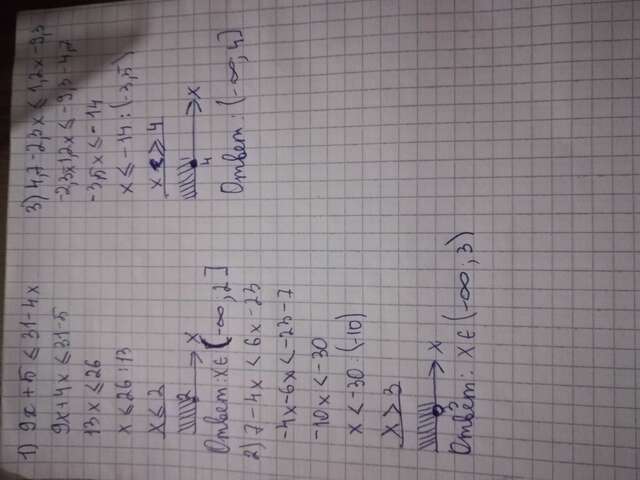 1) 9x + 5 ≤ 31 - 4x
9x + 4x ≤ 31 - 5
13x ≤ 26
x ≤ 26 : 13
x ≤ 2
2 x
Ответ: x ∈ (-∞; 2]
2) 7 - 4x < 6x - 23
-4x - 6x < -23 - 7
-10x < -30
x < -30 : (-10)
x > 3
3 x
Ответ: x ∈ (-∞; 3)
3) 4,7 - 2,3x ≤ 1,2x - 9,3
-2,3x 1,2x ≤ -9,3 - 4,7
-3,5x ≤ -14
x ≤ -14 : (-3,5)
x ≥ 4
4 x
Ответ: (-∞; 4]